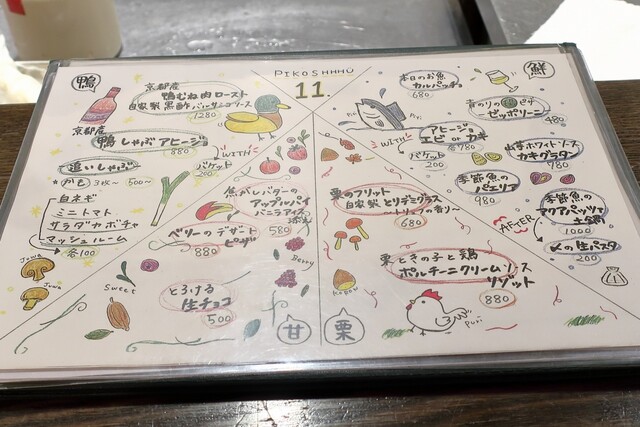 PIKOSHAHU
11.
鴨
京都産
鴨むね肉ロースト
自家製黒酢バルサミコソース
1280
京都産
鴨しゃぶアヒージョ
880
WITH
バゲット
200
追いしゃぶ
かも 3枚〜 500〜
白ネギ
ミニトマト
サラダカボチャ
マッシュルーム
各100
焦がしバターの
アップルパイ
バニラアイス添え
580
ベリーのデザートピザ
880
Berry
Sweet
とろける
生チョコ
500
甘
鮮
本日のお魚
カルパッチョ
680
ゼッポリーニ
480
WITH
アヒージョ
エビ or カキ
各780
バゲット
200
ホワイトソース
カキグラタン
780
季節魚の
パエリア
980
季節魚の
アクアパッツァ
1000
AFTER
〆の生パスタ
200
栗のフリット
自家製とりデミグラス
〜トリュフの香り〜
680
栗ときの子と鶏
ポルチーニクリームソース
リゾット
880
栗